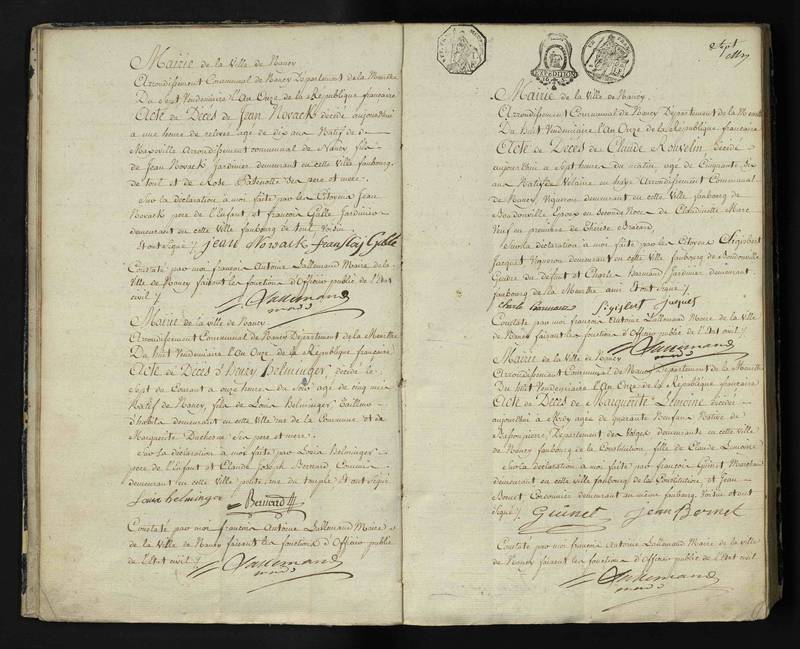 Mairie de la Ville de Nancy
Arrondissement Communal de Nancy Département de la Meurthe
Du Sept Vendemiaire l'An Onze de la République française
Acte de Décès de Jean Novack décédé aujourdhui
a une heure de relevée agé de dix ans Natif de
Maxeville Arrondissement communal de Nancy fils
de Jean Novack Jardinier demeurant en cette Ville faubourg
de toul et de Rose Patenotte ses pere et mere.
Sur la déclaration à moi faite par les Citoyens Jean
Novack pere de l'Enfant et françois Galle Jardinier
demeurant en cette Ville faubourg de toul, voisin
Et ont signé /. jean Nowack franssois Galle
Constaté par moi françois Antoine Lallemand Maire de la
Ville de Nancy faisant les fonctions d'Officier public de l'Etat
civil /.
Lallemand
maire
Mairie de la ville de Nancy
Arrondissement Communal de Nancy Département de la Meurthe
Du huit Vendemiaire l'An Onze de la République française
Acte de Décès d'henry Belminger, décédé le
Sept du Courant a onze heures du Soir agé de cinq mois
Natif de Nancy, fils de Louis Belminger, Tailleur
d'habits demeurant en cette Ville rue de la Commune et de
Marguerite Duchesne ses pere et mere.
Sur la déclaration à moi faite par Louis Belminger
pere de l'Enfant et Claude Joseph Bernard Commis
demeurant en cette Ville petite rue du temple Et ont signé
Louis belminger Bernard
Constaté par moi françois Antoine Lallemand Maire
de la Ville de Nancy faisant les fonctions d'Officier public
de l'Etat civil /.
Lallemand
maire
Sept
Mairie de la Ville de Nancy
Arrondissement Communal de Nancy Département de la Meurthe
Du huit Vendemiaire l'An Onze de la République française
Acte de Décès de Claude Rouvelin décédé
aujourdhui a Sept heures du matin, agé de Cinquante dix
ans Natif de Velaine en haye Arrondissement Communal
de Nancy, Vigneron demeurant en cette Ville faubourg de
Boudonville Epoux en Seconde Noce de Claudinette Marc
Veuf en premiere de Thérèse Bracard.
Sur la déclaration à moi faite par les Citoyens Sigisbert
Jacquet Vigneron demeurant en cette Ville faubourg de Boudonville
Gendre du défunt et Charles Jardinier demeurant
faubourg de la Meurthe ami Et ont Signé /.
Charle Sigisbert Jacquet
Constaté par moi françois Antoine Lallemand Maire de la Ville
de Nancy faisant les fonctions d'Officier public de l'Etat civil /.
Lallemand
maire
Mairie de la Ville de Nancy
Arrondissement Communal de Nancy Département de la Meurthe
Du huit Vendemiaire l'An Onze de la République française
Acte de Décès de Marguerite Limoine décédée
aujourdhui à Midy agée de quarante Neuf ans Native de
Département des Vosges demeurante en cette Ville
de Nancy faubourg de la Constitution, fille de Claude Limoine
Sur la déclaration à moi faite par François Guinet Marchand
demeurant en cette ville faubourg de la Constitution et Jean
Bernet Cordonnier demeurant au même faubourg Voisin et ont
Signé /. Guinet Jean Bernet
Constaté par moi françois Antoine Lallemand Maire de la ville
de Nancy faisant les fonctions d'Officier public de l'Etat civil
Lallemand
maire